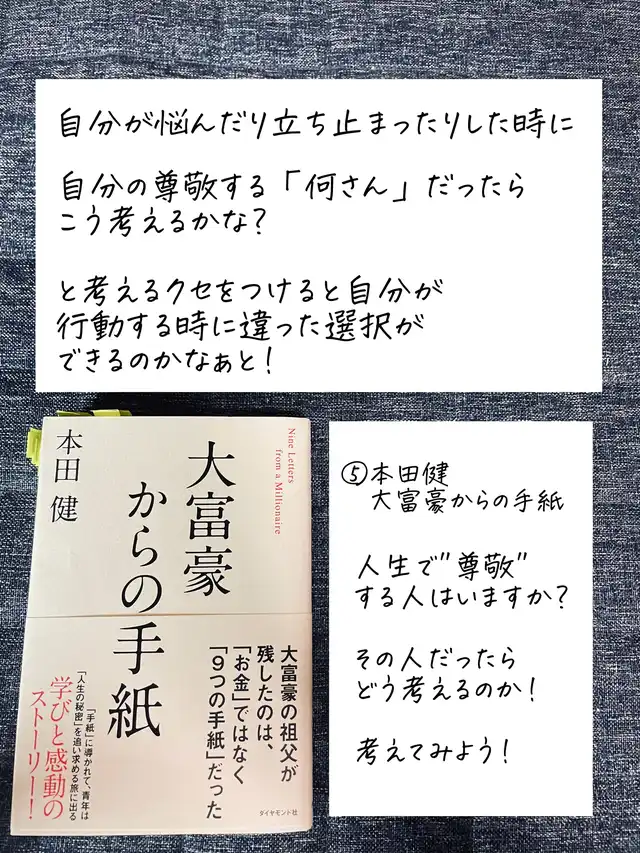 自分が悩んだり立ち止まったりした時に
自分の尊敬する「何さん」だったら
こう考えるかな?
と考えるクセをつけると自分が
行動する時に違った選択が
できるのかなぁと!
本田 健
大富豪
からの手紙
Nine Letters
from a Millionaire
大富豪の祖父が
残したのは、
「お金」ではなく
「9つの手紙」だった
「手紙」に導かれて、青年は
「人生の秘密」を追い求める旅に出る
学びと感動の
ストーリー!
ダイヤモンド社
⑤本田健
大富豪からの手紙
人生で"尊敬"
する人はいますか?
その人だったら
どう考えるのか!
考えてみよう!